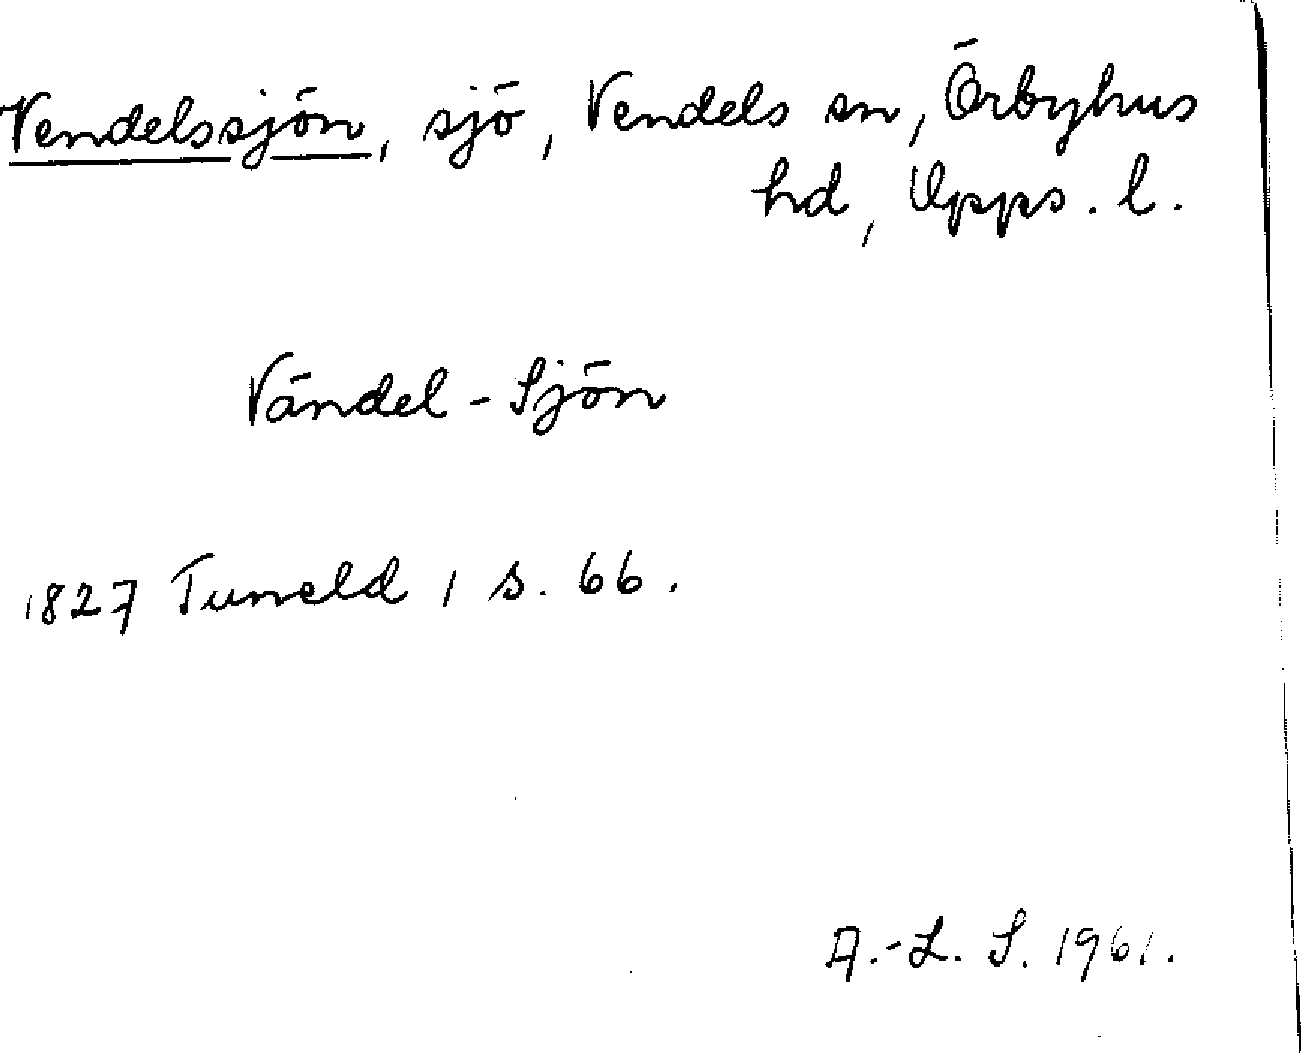 Vendelssjön, sjö, Vendels sn, Örbyhus
hd, Upps. l.
Vändel-Sjön
1827 Tuneld 1 s. 66.
A.-L. S. 1961.